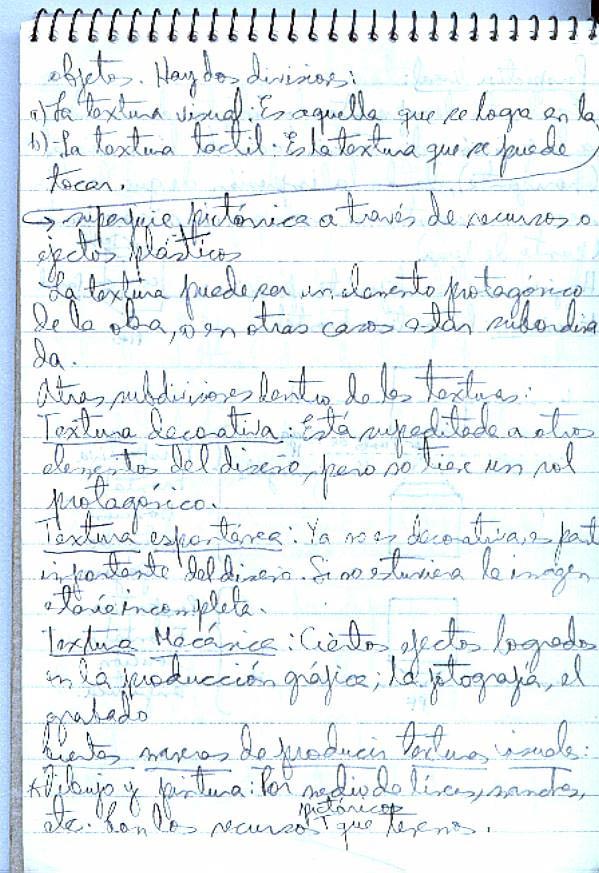 objetos. Hay dos divisiones:
a) La textura visual: Es aquella que se logra en la
b)-La textura táctil: Es la textura que se puede
tocar.
→ superficie pictórica a través de recursos o
efectos plásticos
La textura puede ser un elemento protagónico
de la obra, o en otras casos están subordina
da.
Otras subdivisiones dentro de las texturas:
Textura decorativa: Está supeditada a otros
elementos del diseño, pero no tiene un rol
protagónico.
Textura espontánea: Ya no es decorativa, es part
importante del diseño. Si no estuviera la imágen
estaría incompleta.
Textura Mecánica: Ciertos efectos logrados
en la producción gráfica; la fotografía, el
grabado
Ciertas maneras de producir texturas visuales:
* Dibujo y pintura: Por medio de líneas, manchas,
etc. Con los recursos pictóricos que tenemos.